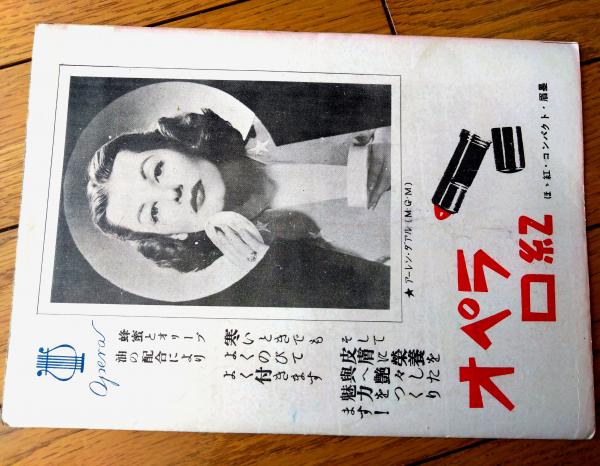 オペラ
口紅
ほゝ紅・コンパクト・眉墨
★ アーレン・ダアル (M・G・M)
Opera
蜂蜜とオリーブ
油の配合により
寒いときでも
よくのびて
よく付きます
そして
皮膚に栄養を
與へ艶々した
魅力をつくり
ます!